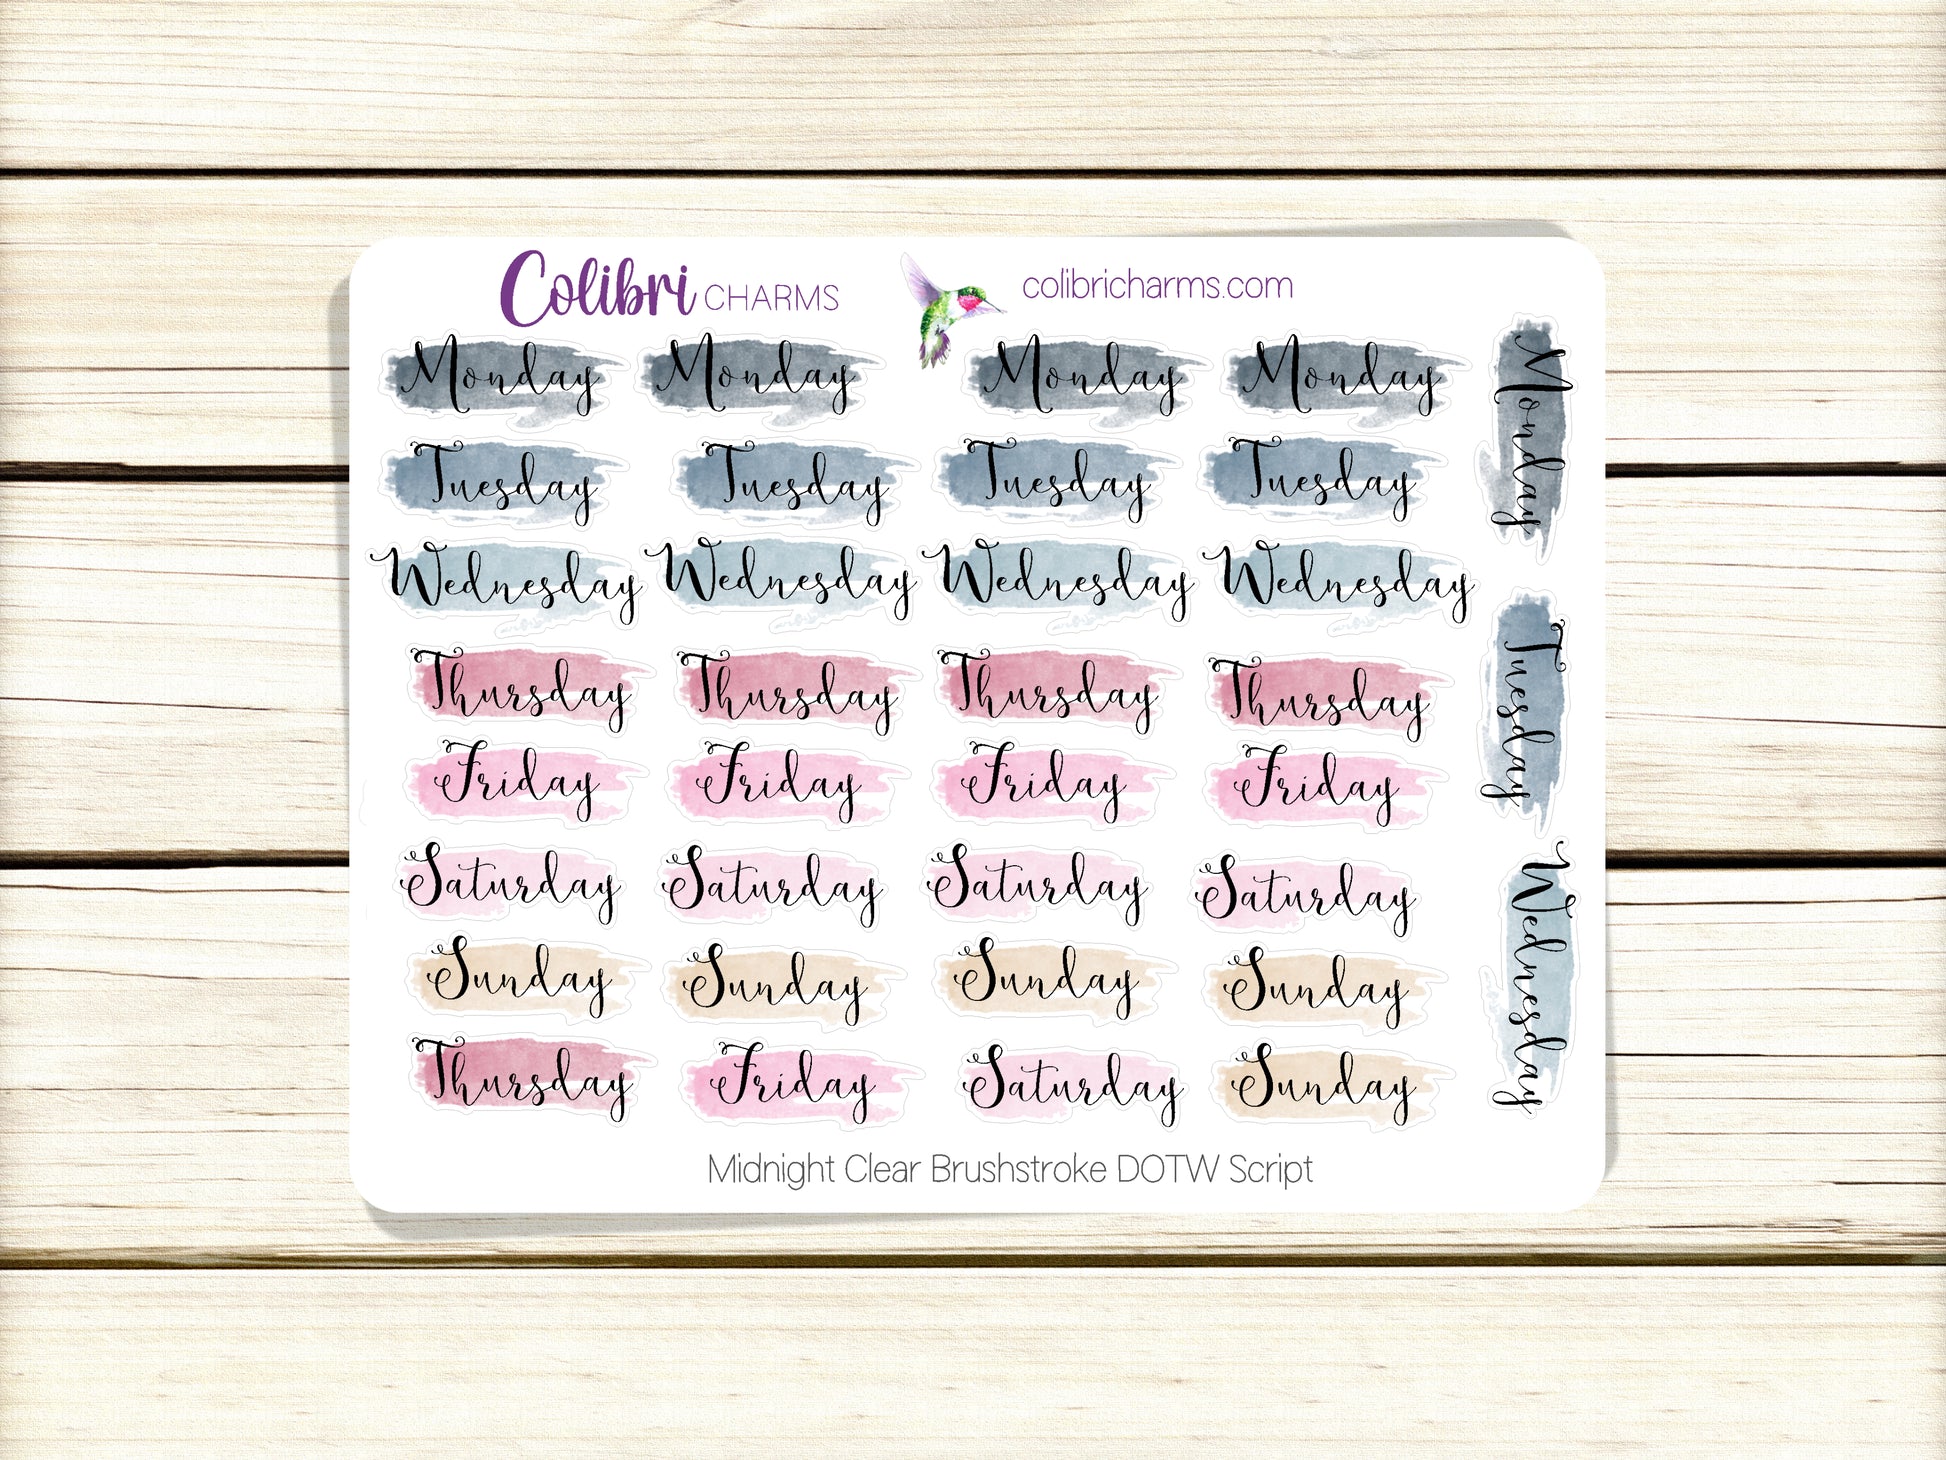 Colibri CHARMS
colibricharms.com
Monday Monday Monday Monday
Tuesday Tuesday Tuesday Tuesday
Wednesday Wednesday Wednesday Wednesday
Thursday Thursday Thursday Thursday
Friday Friday Friday Friday
Saturday Saturday Saturday Saturday
Sunday Sunday Sunday Sunday
Thursday Friday Saturday Sunday
Monday
Tuesday
Wednesday
Midnight Clear Brushstroke DOTW Script